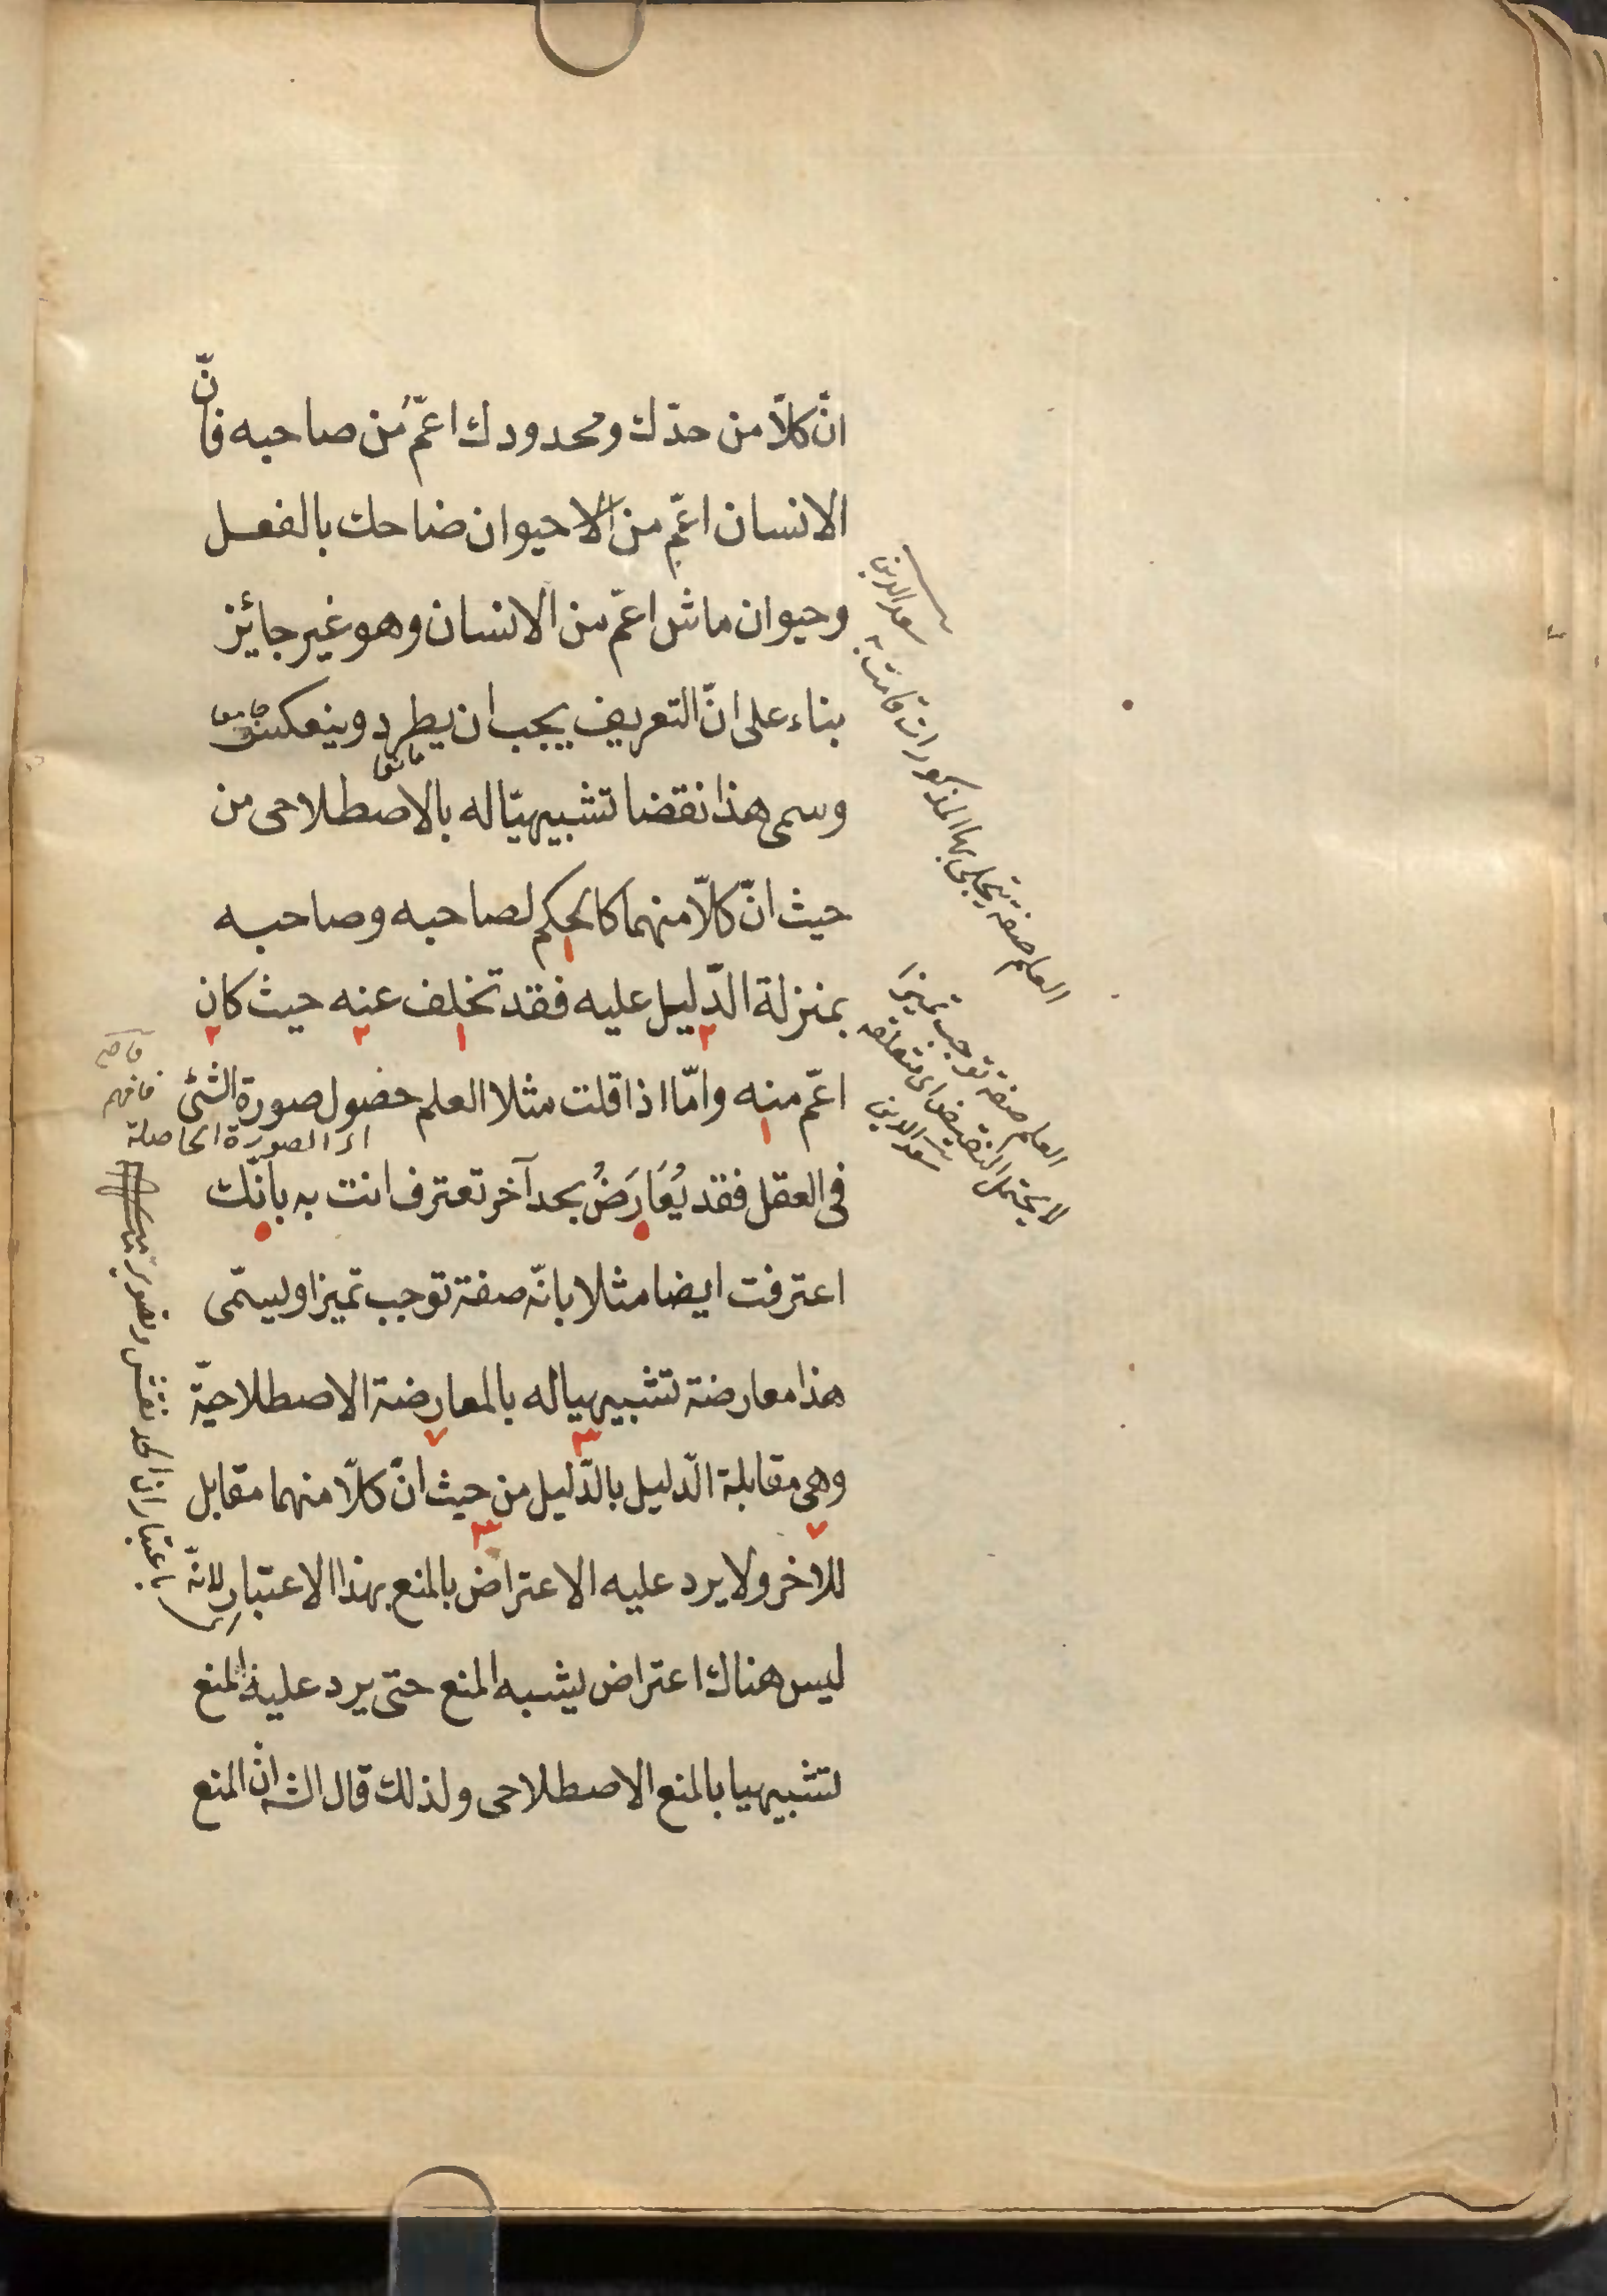 انّ كلاّ من حدّك ومحدودك اعمّ من صاحبه فانّ
الانسان اعمّ من الاحيوان ضاحك بالفعل
وحيوان ماش اعمّ من الانسان وهو غير جائز
بناء على انّ التعريف يجب ان يطرد وينعكس
وسمى هذا نقضا تشبيهيّا له بالاصطلاحى من
حيث انّ كلاّ منهما كالحكم لصاحبه وصاحبه
بمنزلة الدّليل عليه فقد تخلف عنه حيث كان
اعمّ منه وامّا اذا قلت مثلا العلم حضول صورة الشئ
اى الصورة الحاصلة
فى العقل فقد يُعَارَضُ بحد آخر تعترف انت به بانّك
اعترفت ايضا مثلا بانّه صفة توجب تميزا ويسمّى
هذا معارضة تشبيهيا له بالمعارضة الاصطلاحيّة
وهى مقابلة الدّليل بالدّليل من حيث انّ كلاّ منهما مقابل
للاخر ولا يرد عليه الاعتراض بالمنع بهذا الاعتبار لانّه
ليس هناك اعتراض يشبه المنع حتى يرد عليه المنع
لتشبيهيا بالمنع الاصطلاحى ولذلك قال الشه انّ المنع
العلم صفة يتجلى بها المذكور ان قامت به
سعد الدين
العلم صفة توجب تميزا
لا يحتمل النقيض اى متعلقه
سعد الدين
فافهم
باعتبار ان الحد نقش وتصوير